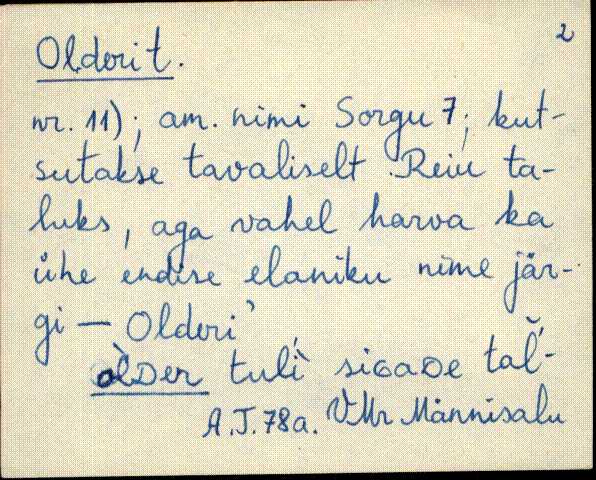 2
Olderit.
nr. 11); am. nimi Sorgu 7; kut-
sutakse tavaliselt Reiu ta-
luks, aga vahel harva ka
ühe endise elaniku nime jär-
gi — Olderi'
òlDer tulì siGaDe tal̆'-
A.J. 78a. VMr Männisalu